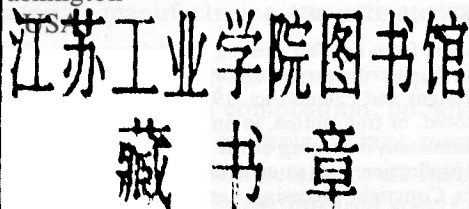 USA
江苏工业学院图书馆
藏书章